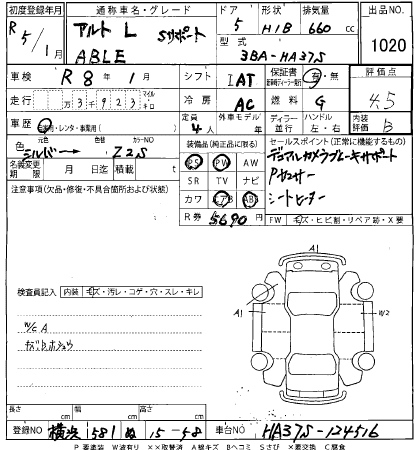 初度登録年月
R 5/1月
通称車名・グレード
アルト L Sサポート
ABLE
ドア 形状 排気量
5 H/B 660 cc
型式
3BA-HA37S
出品NO.
1020
車検 R 8年 1月
シフト IAT
保証書
有・無
評価点
4.5
走行 万 3千 9 2 3 マイル キロ
冷房 AC
燃料 G
車歴 自家用・レンタ・事業用( )
定員 4人
外車モデル 年
ディーラー 並行
ハンドル 左・右
内装評価 B
色 シルバー
色替
カラーNO Z2S
名義変更期限 月 日迄
積載
装備品(純正品に限る)
PS PW AW
SR TV ナビ
カワ エアB ABS
R券 5690円
セールスポイント(正常に機能するもの)
デュアルカメラブレーキサポート
Pセンサー
シートヒーター
注意事項(欠品・修復・不具合箇所および状態)
FW キズ・ヒビ割・リペア跡・X要
検査員記入 内装 キズ・汚レ・コゲ・穴・スレ・キレ
W/C A
A1
A1
W2
長さ cm 幅 cm 高さ cm
登録NO 横浜 581 ぬ 15-58
車台NO HA37S-124516
P 要塗装 W波有り ××取替済 A線キズ Bヘコミ Sさび ×要交換 C腐食